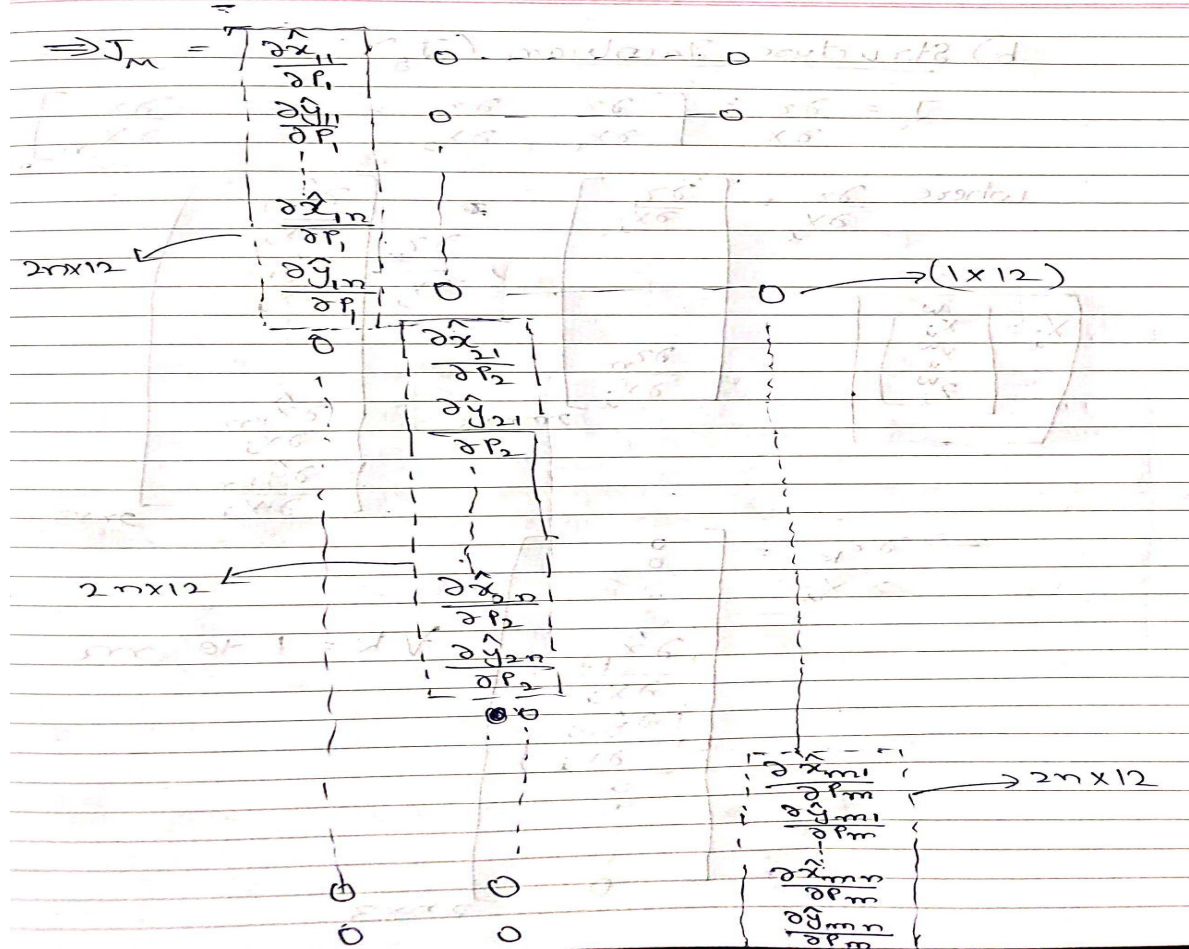 ⇒ J_M = ∂x̂₁₁/∂P₁ 0 - - - - 0
∂ŷ₁₁/∂P₁ 0 - - - - 0
∂x̂₁ₙ/∂P₁
2n×12
∂ŷ₁ₙ/∂P₁ 0 - - - - 0 → (1×12)
0 ∂x̂₂₁/∂P₂
∂ŷ₂₁/∂P₂
2n×12
∂x̂₂ₙ/∂P₂
∂ŷ₂ₙ/∂P₂
0 0
∂x̂ₘ₁/∂Pₘ → 2n×12
∂ŷₘ₁/∂Pₘ
0 0 ∂x̂ₘₙ/∂Pₘ
0 0 ∂ŷₘₙ/∂Pₘ